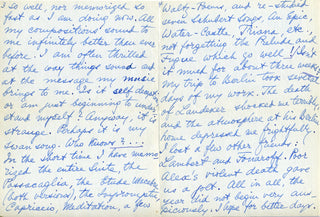 3 so well, nor memorized so
fast as I am doing now. All
my compositions sound to
me infinitely better than ever
before. I am often thrilled
at the way things and
at the message my music
brings to me. Is it self
or am just beginning to under-
stand myself? Anyway, it is
strange. Perhaps it is my
swan song. Who knows?...
In the short time I have memo-
rized the entire Suite, the
Passacaglia, the Etude
(both versions), the Impromptu,
Capriccio, Meditation, a few
Waltz-Poems, and re-studied
seven Schubert songs. An Epic,
Water-Castle, Triana, etc.
not forgetting the Prelude and
Fugue which go well. I lost
not much for about three weeks,
my trip to Berlin took several
days of my work. The death
of Landeker shocked me terribly,
and the atmosphere at his Berlin
home depressed me frightfully.
I lost a few other friends:
Lambert and . Poor
Alex's violent death gave
us a jolt. All in all, the
year did not begin very aus-
piciously. I hope for better days.